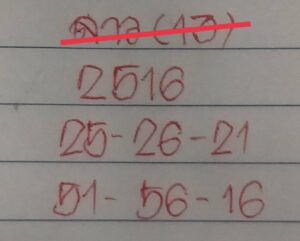 ลาว (13)
2516
25-26-21
51-56-16